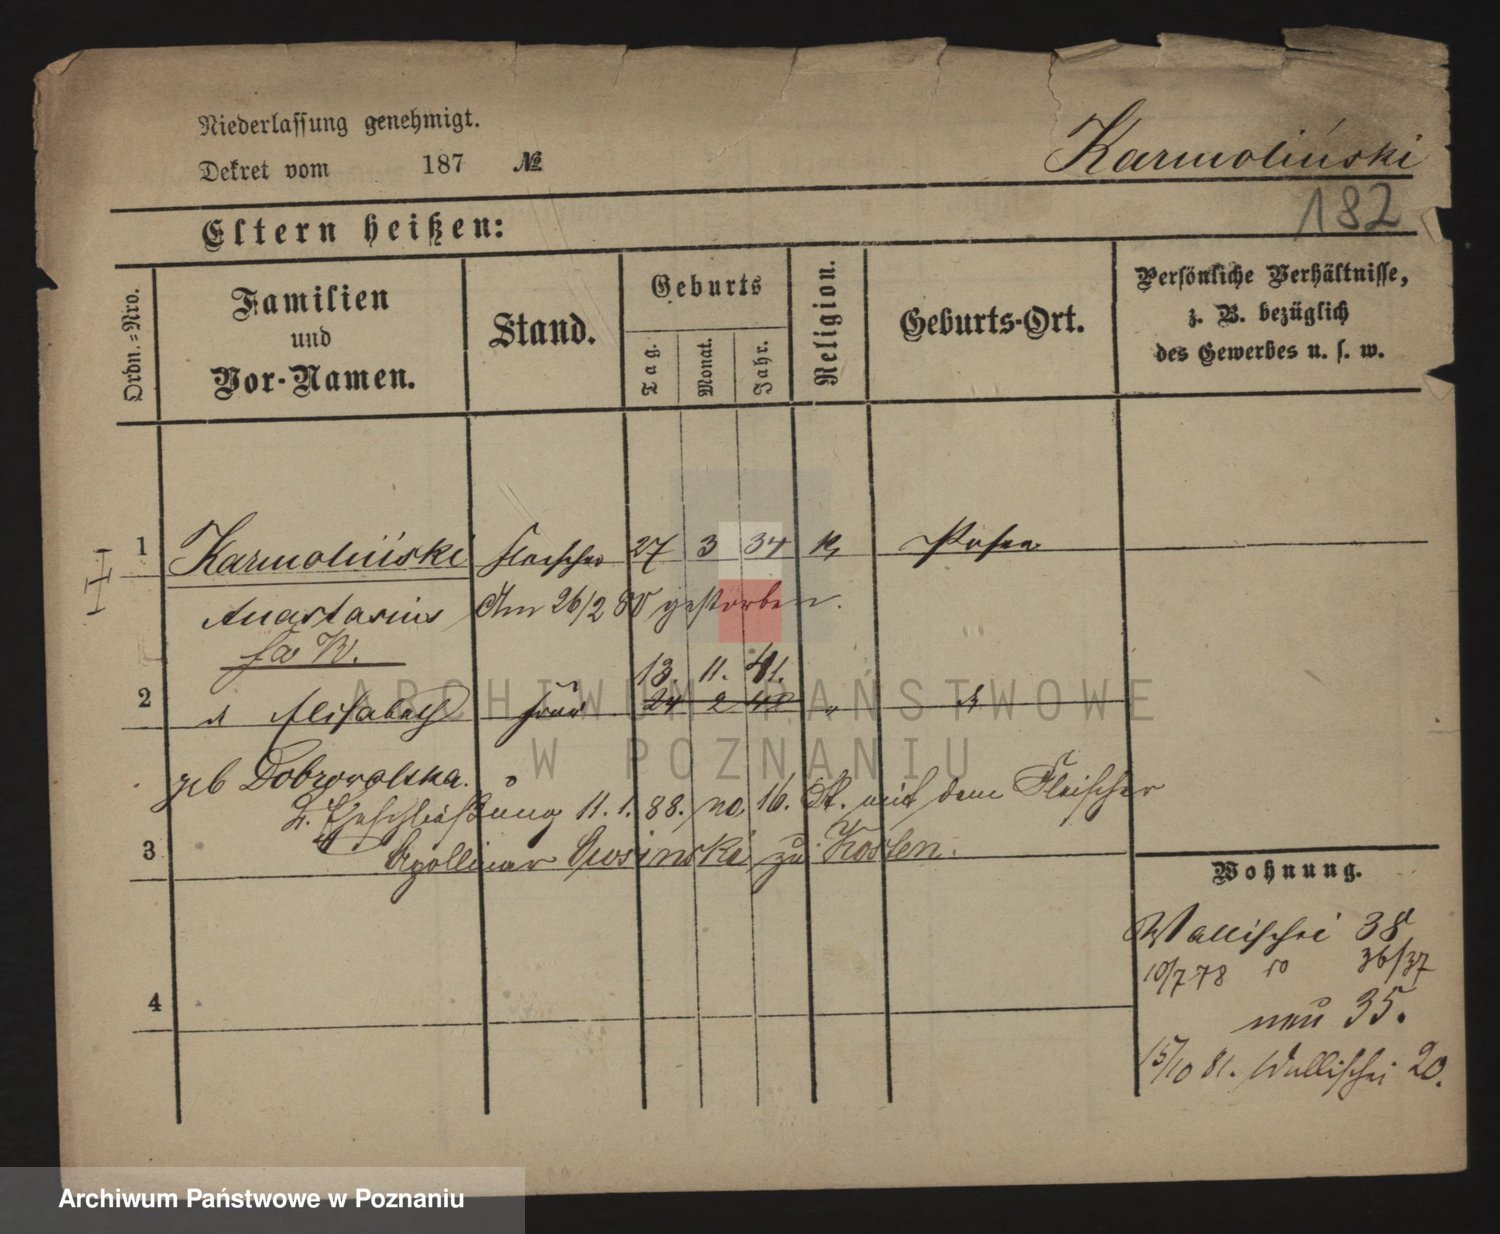 Niederlassung genehmigt.
Dekret vom 187 №
Karmoliński
182
Eltern heißen:
Ordn.=Nro.
Familien und Vor-Namen.
Stand.
Geburts
Tag. Monat. Jahr.
Religion.
Geburts-Ort.
Persönliche Verhältnisse,
z. B. bezüglich
des Gewerbes u. s. w.
1 Karmoliński Fleischer 27 3 34 k Posen
Anastasius Am 26/2 80 gestorben.
13. 11. 41.
2 Elisabeth Frau 24 2 48 "
geb Dobrowolska.
2. Eheschließung 11. 1. 88. no 16. St. mit dem Fleischer
3 Apollinar Gvosinski zu Kosten.
4
Wohnung.
Wallischei 38
10/7 78 36/37
neu 35.
15/10 81. Wallischei 20.
ARCHIWUM PAŃSTWOWE
W POZNANIU
Archiwum Państwowe w Poznaniu